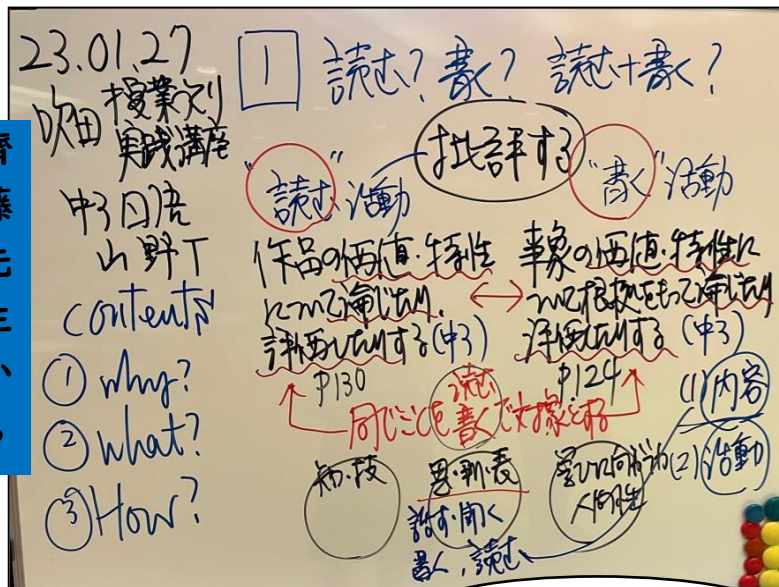 23.01.27
吹田 授業づくり
実践講座
中3国語
山野T
contents
① why?
② what?
③ How?
1 読む?書く? 読む+書く?
批評する
"読む"活動
"書く"活動
作品の価値・特性
について論じたり、
評価したりする(中3)
P130
事象の価値・特性に
ついて根拠をもって論じたり
評価したりする(中3)
P124
同じことを 読む 書く で対象とする
(1) 内容
(2) 活動
知・技
思・判・表
話す・聞く
書く、読む
学びに向かう力
人間性
齊藤先生から